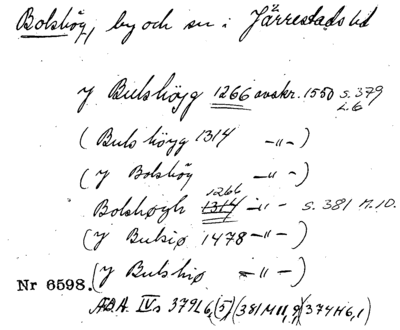 Bolshög, by och sn i Järrestads hd
y Bulshöyg 1266 avskr. 1550 s. 379 L. 6
(Bulshöyg 1314 -"-)
(y Bolshöy -"-)
1266
Bolshøgh 1314 -"- s. 381 M. 10.
(y Bulsiø 1478 -"-)
Nr 6598. (y Bulshiø -"-)
ÆDA. IVs 379L6,(5)(381M11,9)(374H6,1)